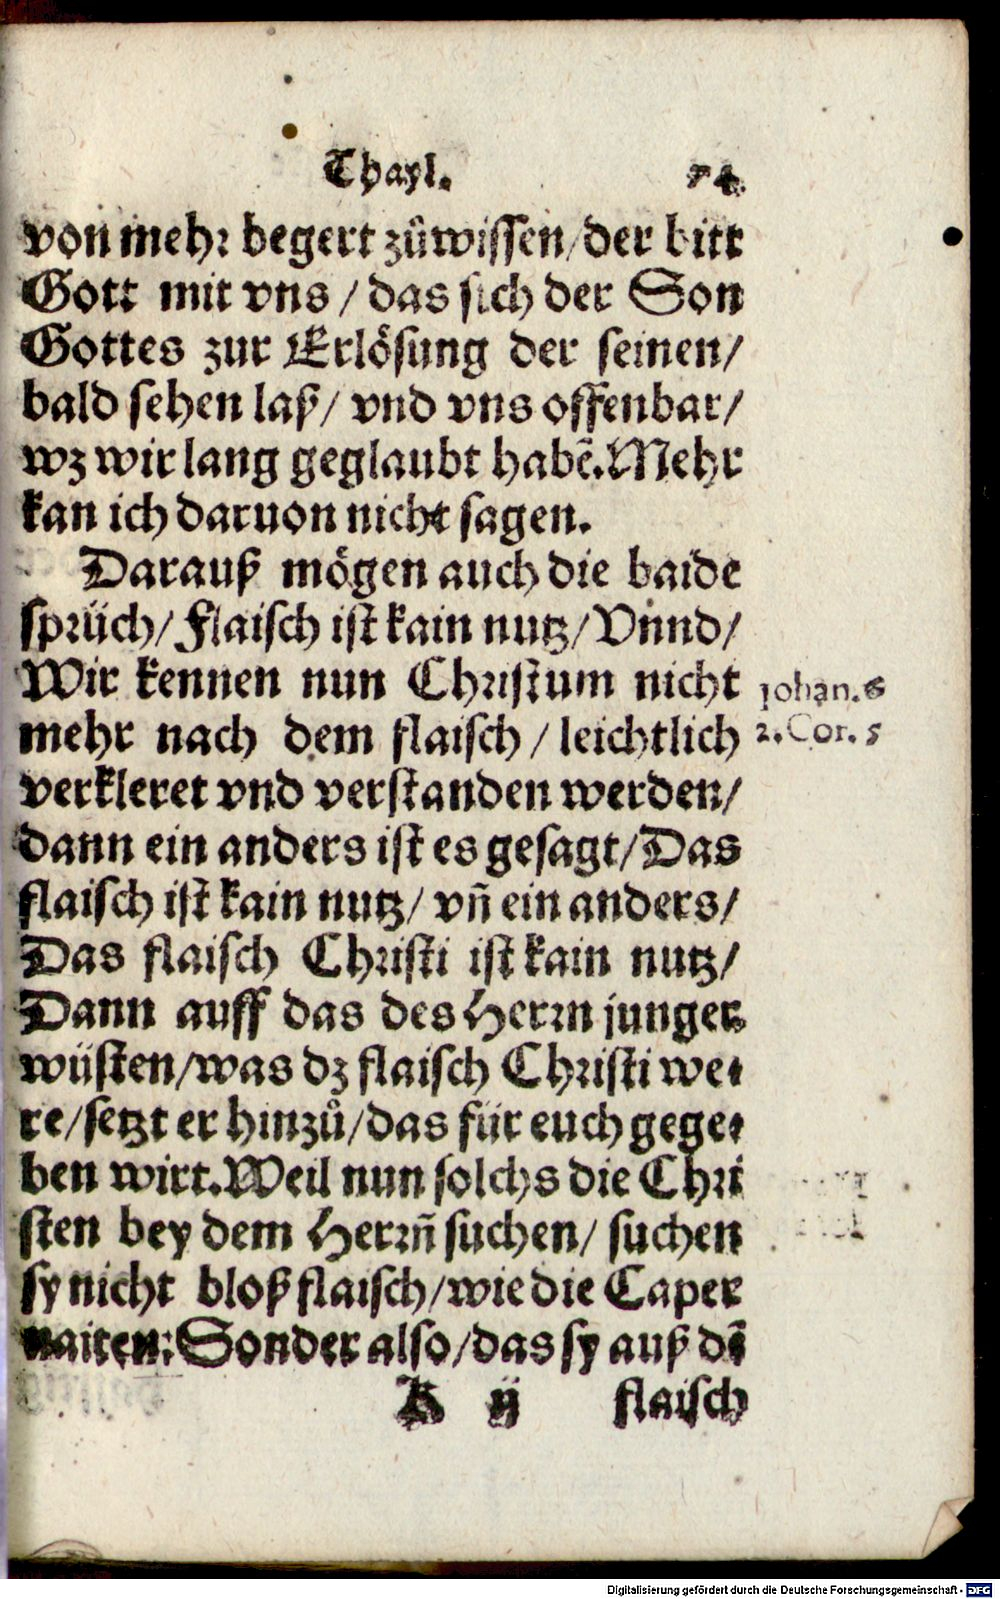 Thayl. 74.
von mehr begert zů wissen/ der bitt
Gott mit vns / das sich der Son
Gottes zur Erlösung der seinen/
bald sehen laß/ vnd vns offenbar/
wz wir lang geglaubt habẽ. Mehr
kan ich daruon nicht sagen.
Darauß mögen auch die baide
sprüch/ Flaisch ist kain nutz/ Vnnd/
Wir kennen nun Christum nicht
Johan. 6
mehr nach dem flaisch / leichtlich
2. Cor. 5
verkleret vnd verstanden werden/
dann ein anders ist es gesagt/ Das
flaisch ist kain nutz/ vñ ein anders/
Das flaisch Christi ist kain nutz/
Dann auff das des Herrn junger
wüsten/ was dz flaisch Christi we⸗
re/ setzt er hinzů/ das für euch gege⸗
ben wirt. Weil nun solchs die Chri
sten bey dem Herrñ suchen/ suchen
sy nicht bloß flaisch/ wie die Caper
naiten: Sonder also/ das sy auß dẽ
K ij flaisch
Digitalisierung gefördert durch die Deutsche Forschungsgemeinschaft - DFG